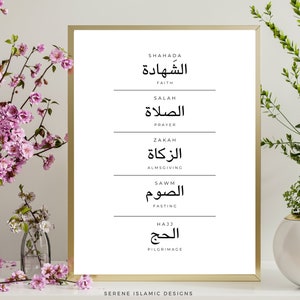 SHAHADA
الشَهادة
FAITH
SALAH
الصلاة
PRAYER
ZAKAH
الزكاة
ALMSGIVING
SAWM
الصوم
FASTING
HAJJ
الحج
PILGRIMAGE
SERENE ISLAMIC DESIGNS